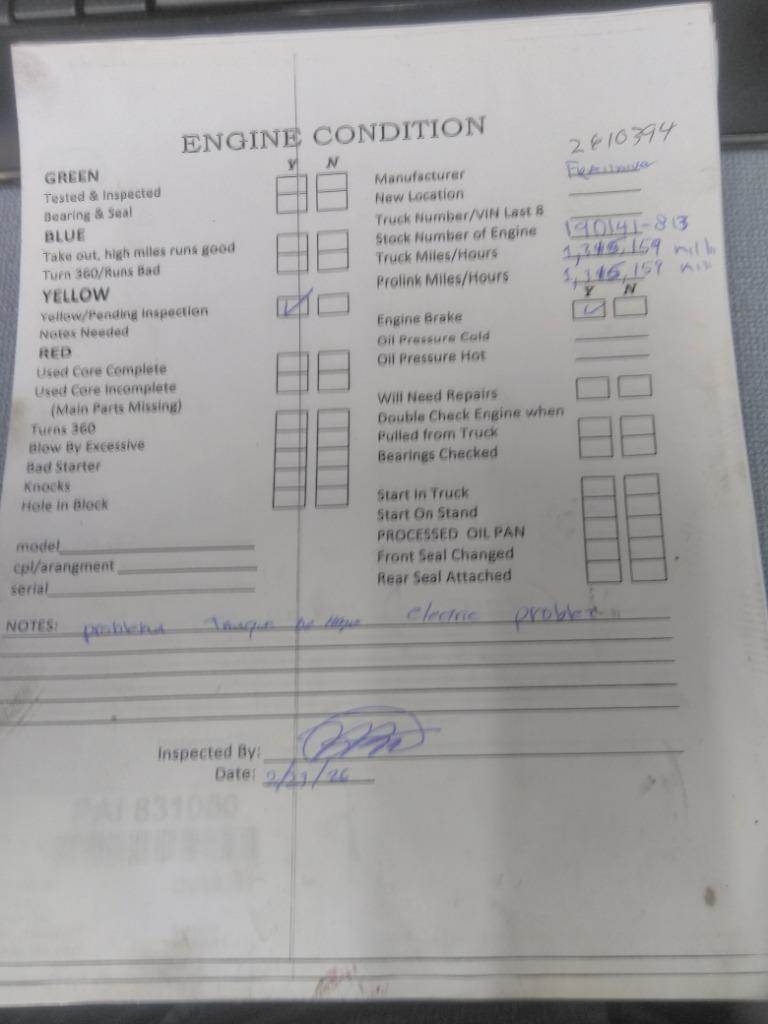 ENGINE CONDITION
2810394
Y N
GREEN
Tested & Inspected
Bearing & Seal
BLUE
Take out, high miles runs good
Turn 360/Runs Bad
YELLOW
Yellow/Pending Inspection
Notes Needed
RED
Used Core Complete
Used Core Incomplete
(Main Parts Missing)
Turns 360
Blow By Excessive
Bad Starter
Knocks
Hole In Block
model
cpl/arangment
serial
Manufacturer
New Location
Truck Number/VIN Last 8
Stock Number of Engine 190141-813
Truck Miles/Hours
Prolink Miles/Hours
Y N
Engine Brake
Oil Pressure Cold
Oil Pressure Hot
Will Need Repairs
Double Check Engine when
Pulled from Truck
Bearings Checked
Start In Truck
Start On Stand
PROCESSED OIL PAN
Front Seal Changed
Rear Seal Attached
NOTES: problema electric problem
Inspected By:
Date: 2/23/26
PAI 831080